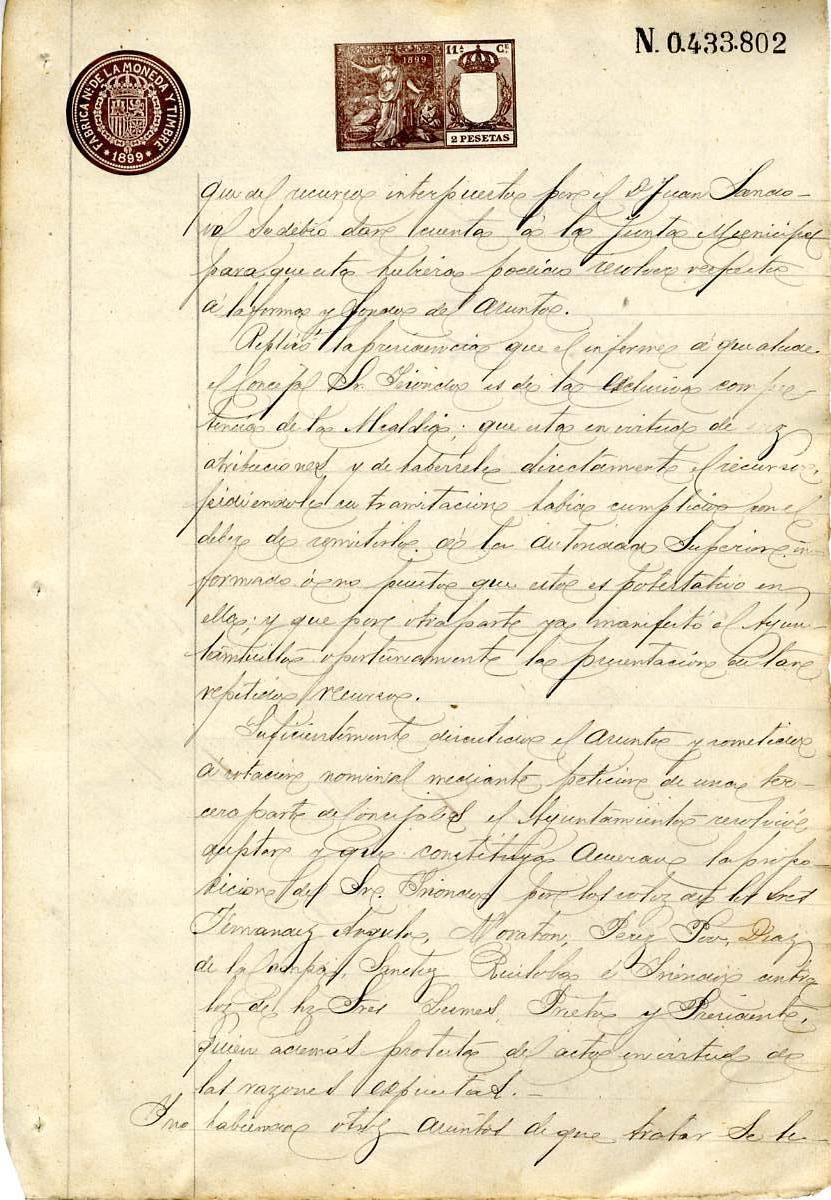 N. 0.433.802
FABRICA NL. DE LA MONEDA Y TIMBRE
* 1899 *
11.ª CE.
AÑO 1899
2 PESETAS
que del recurso interpuesto por el D Juan Sando-
val se debió dar cuenta á la Junta Municipal
para que esta hubiera podido resolver respecto
á la forma y fondo de asunto.
Replicó la presidencia que el informe á que alude
el Concejal Sr. Iriondo es de la exclusiva compe-
tencia de la Alcaldía; que esta en virtud de sus
atribuciones y de habersele directamente el recurso,
pidiendole su tramitacion habia cumplido con el
deber de remitirlo á la autoridad Superior in
formado ó no puesto que esto es potestativo en
ella; y que por otra parte ya manifestó el Ayun-
tamiento oportunamente la presentacion del tan
repetido recurso.
Suficientemente discutido el asunto y sometido
á votacion nominal mediante peticion de una ter-
cera parte de Concejales el Ayuntamiento resolvió
aceptar y que constituya acuerdo la propo-
sicion del Sr. Iriondo por los votos de los Sres
Fernandez Angulo, Moraton, Perez Poo, Diaz
de la Campa, Sanchez Ruiloba é Iriondo contra
los de los Sres Prieto y Presidente,
quien además protestó del acto en virtud de
las razones expuestas.-
Y no habiendo otros asuntos de que tratar se le-